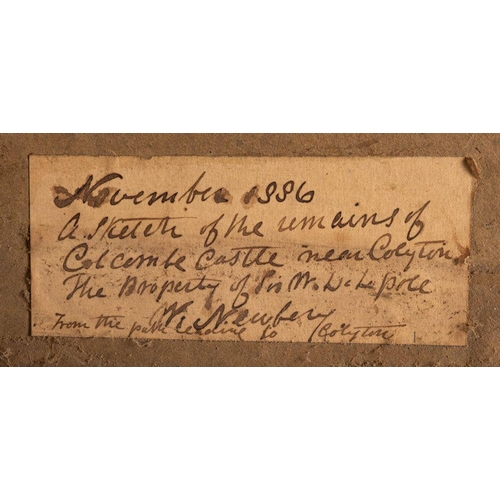 November 1886
A sketch of the remains of
Colcombe Castle near Colyton
The Property of Sir W. De la pole
W. Newbery
From the path leading to Colyton